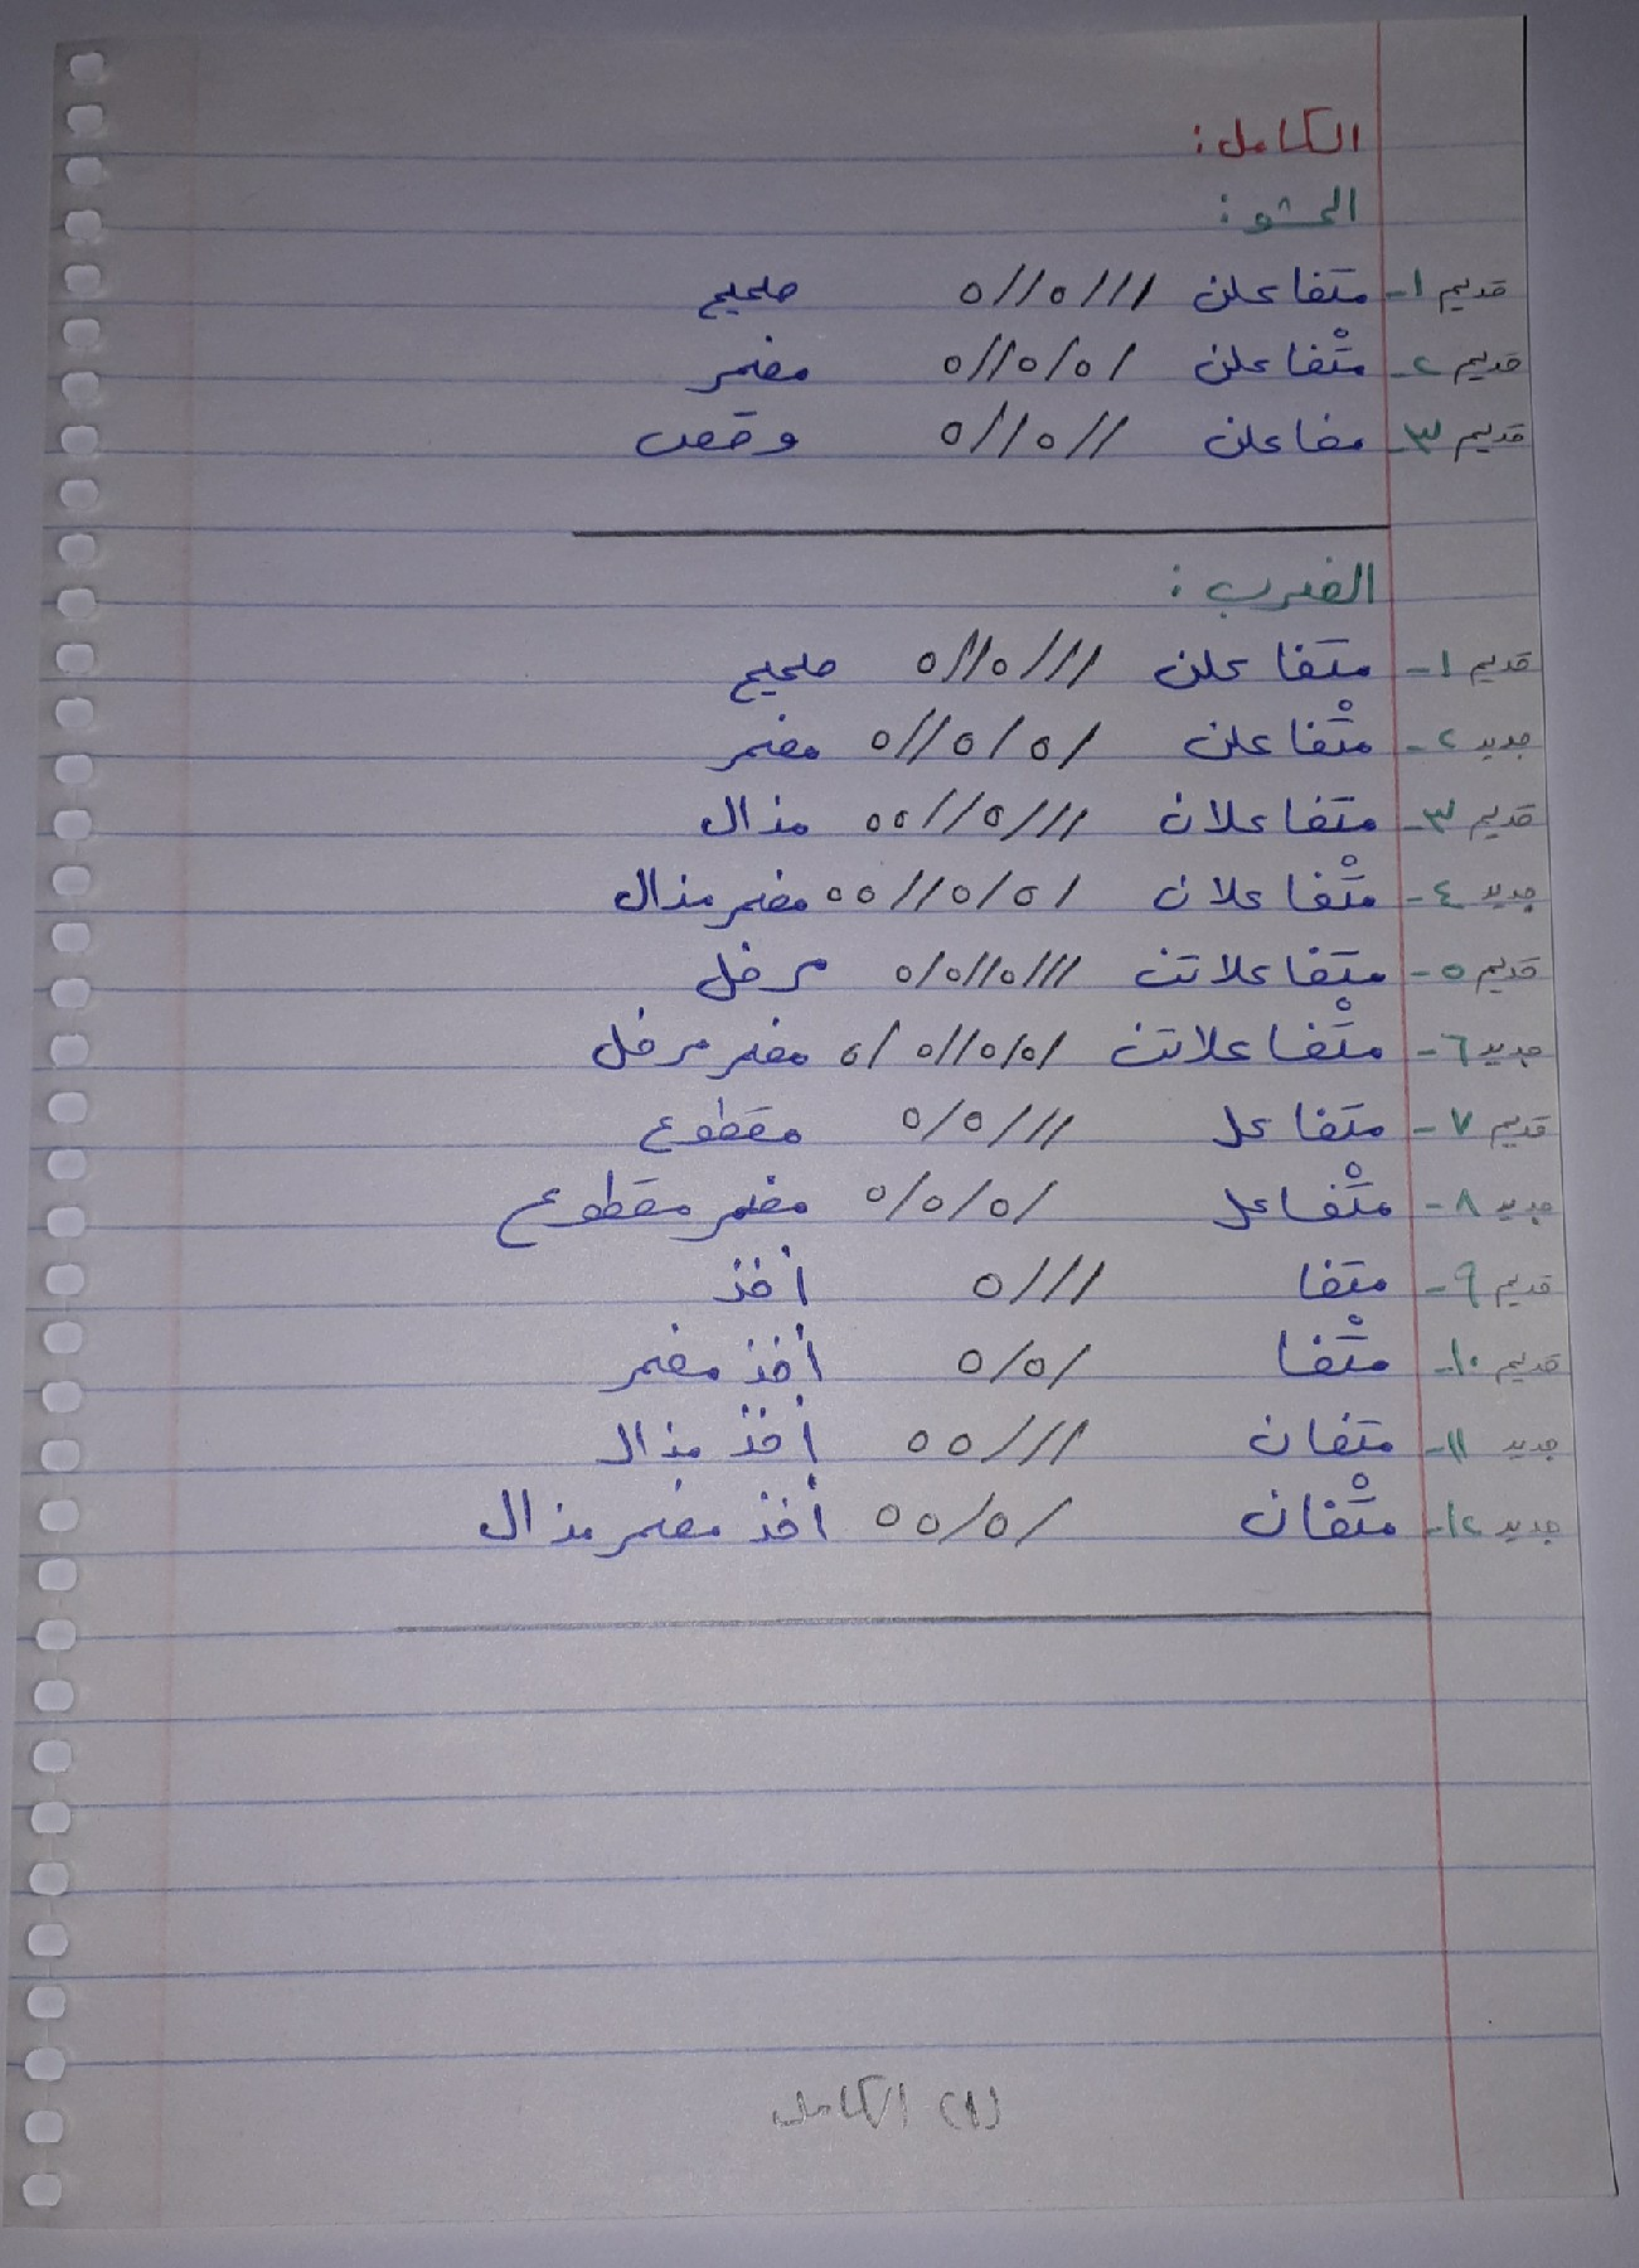 الكامل:
الحشو:
قديم ١- متفاعلن ///٥//٥ صحيح
قديم ٢- متْفاعلن /٥/٥//٥ مضمر
قديم ٣- مفاعلن //٥//٥ وقص
الضرب:
قديم ١- متفاعلن ///٥//٥ صحيح
جديد ٢- متْفاعلن /٥/٥//٥ مضمر
قديم ٣- متفاعلان ///٥//٥٥ مذال
جديد ٤- متْفاعلان /٥/٥//٥٥ مضمر مذال
قديم ٥- متفاعلاتن ///٥//٥/٥ مرفل
جديد ٦- متْفاعلاتن /٥/٥//٥/٥ مضمر مرفل
قديم ٧- متفاعل ///٥/٥ مقطوع
جديد ٨- متْفاعل /٥/٥/٥ مضمر مقطوع
قديم ٩- متفا ///٥ أخذ
قديم ١٠- متْفا /٥/٥ أخذ مضمر
جديد ١١- متفان ///٥٥ أخذ مذال
جديد ١٢- متْفان /٥/٥٥ أخذ مضمر مذال
(١) الكامل